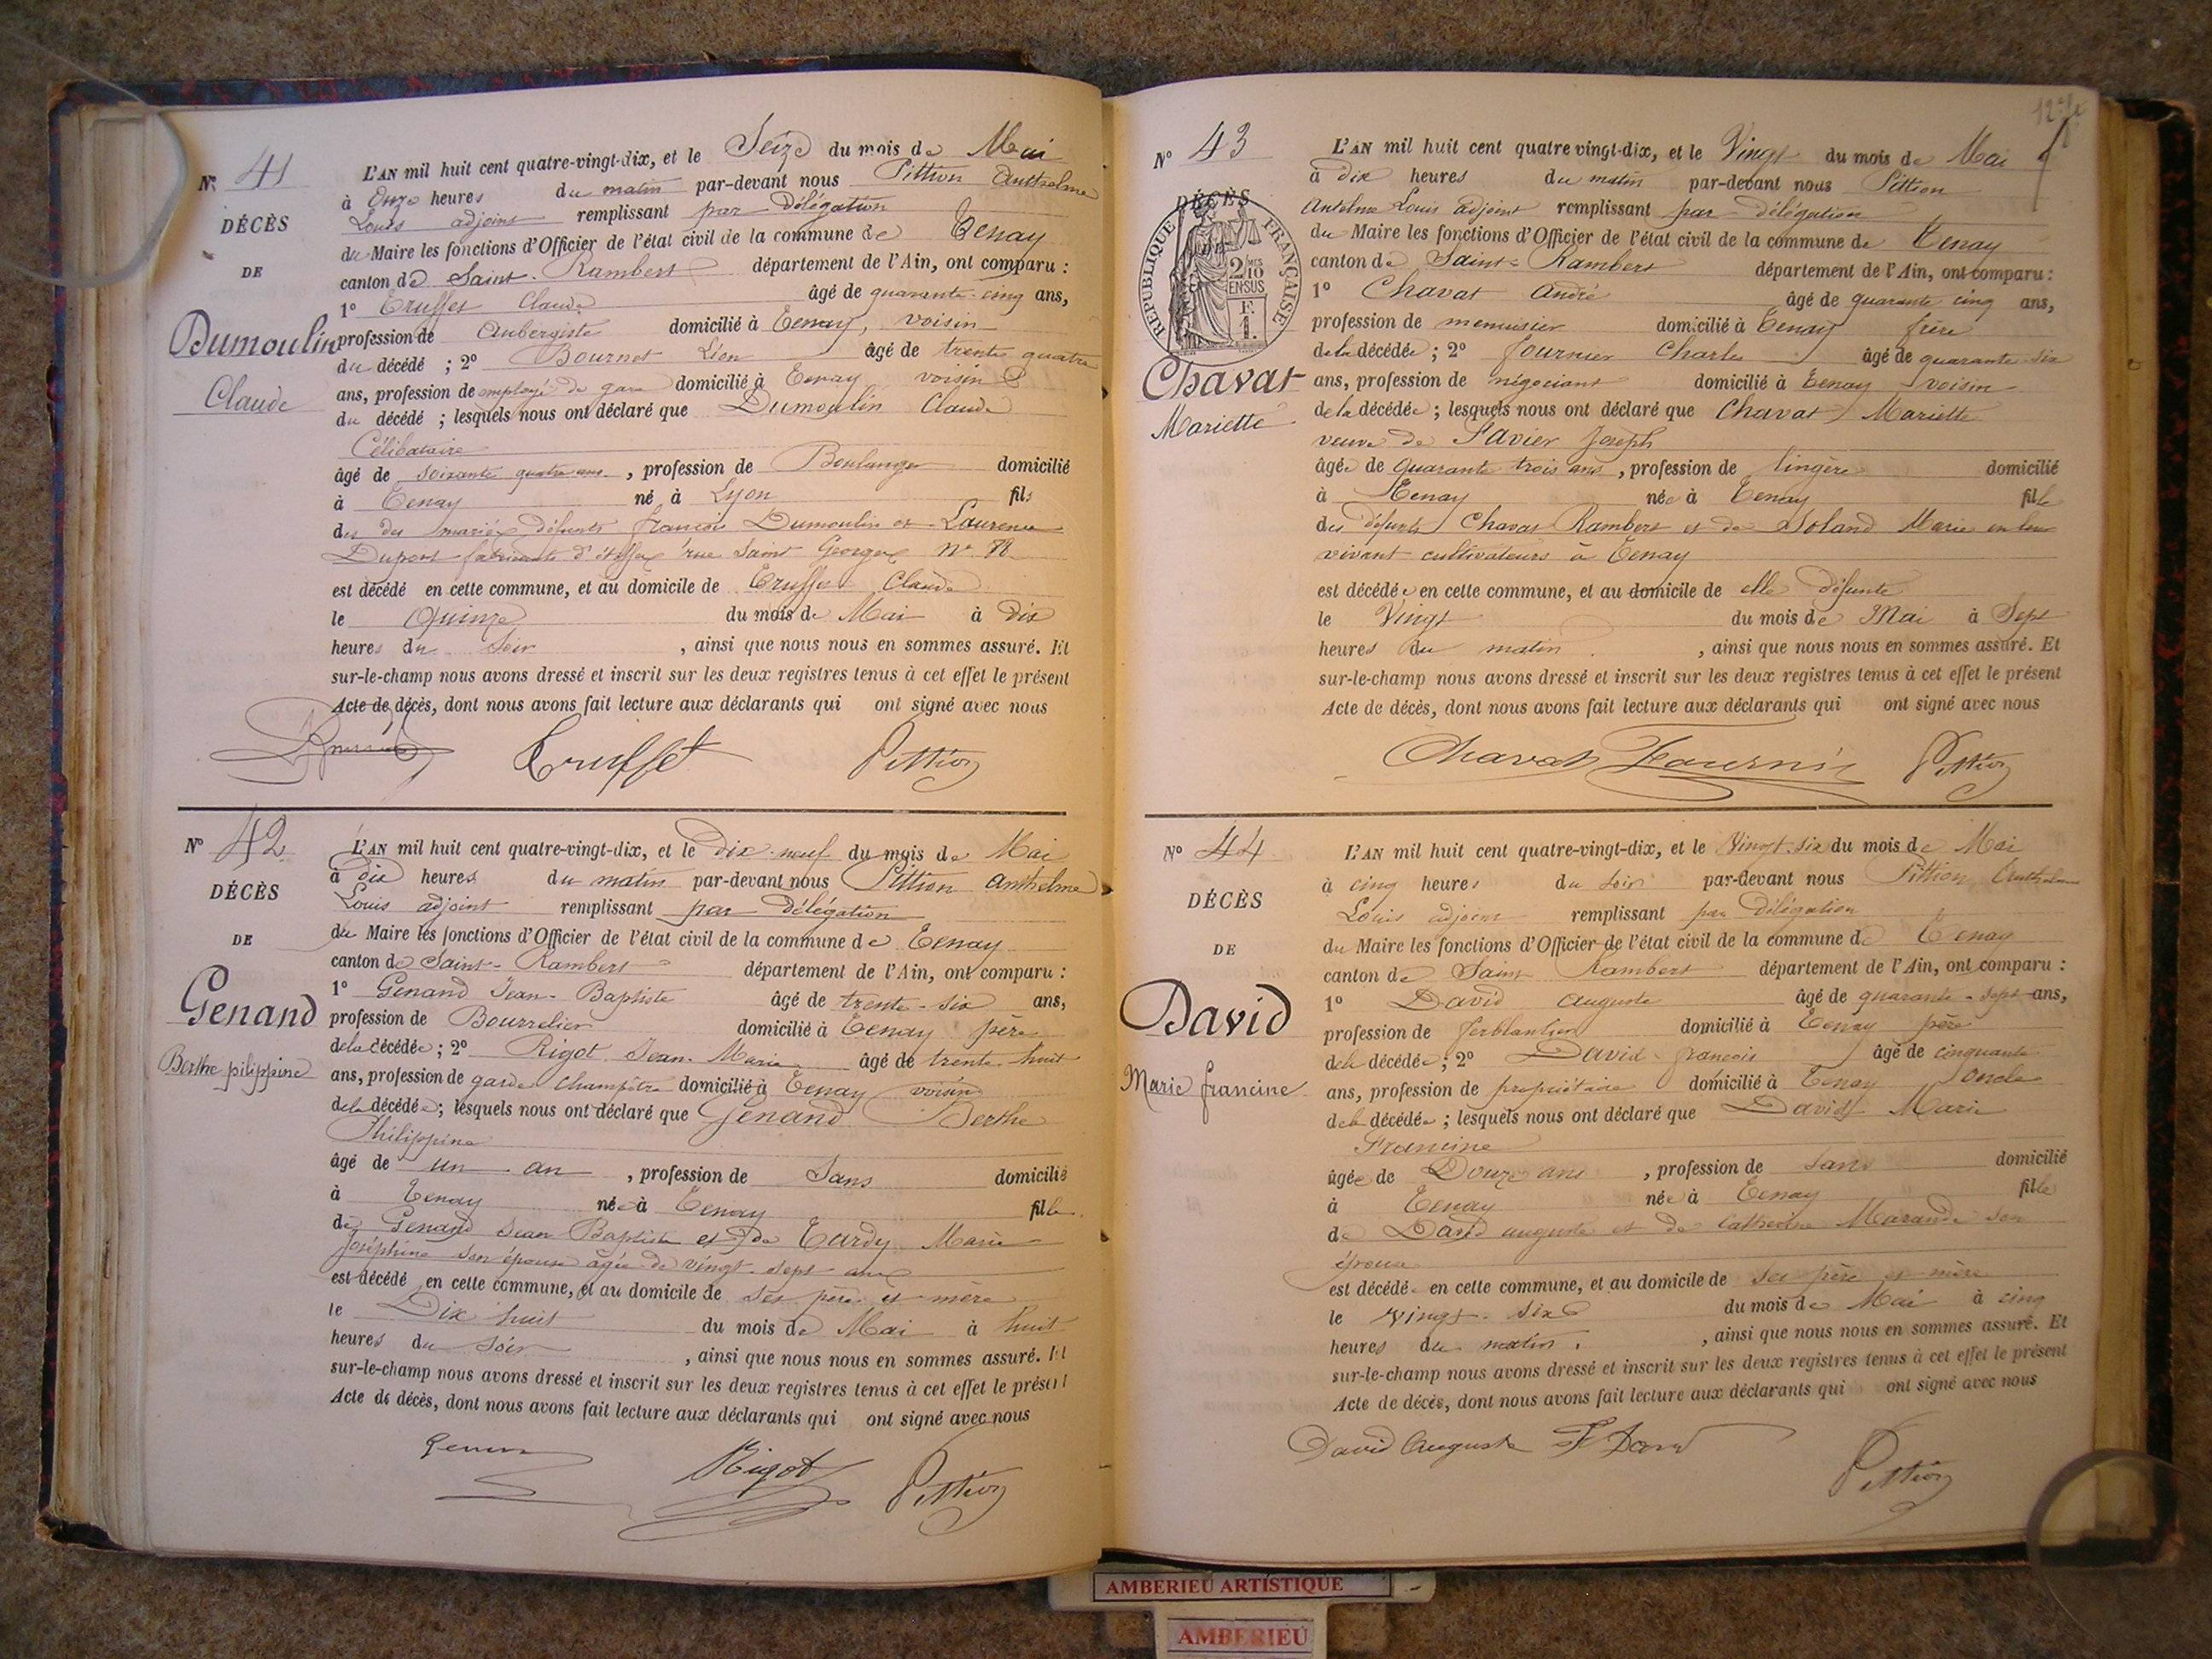 N° 41
DÉCÈS
DE
Dumoulin
Claude
L'AN mil huit cent quatre-vingt-dix, et le Seize du mois de Mai
à Onze heures du matin par-devant nous Pittion Anthelme
Louis adjoint remplissant par Délégation
du Maire les fonctions d'Officier de l'état civil de la commune de Tenay
canton de Saint-Rambert département de l'Ain, ont comparu :
1° Truffet Claude âgé de quarante-cinq ans,
profession de Aubergiste domicilié à Tenay, voisin
du décédé ; 2° Bournet Léon âgé de trente quatre
ans, profession de employé de gare domicilié à Tenay voisin
du décédé ; lesquels nous ont déclaré que Dumoulin Claude
Célibataire
âgé de soixante quatre ans, profession de Boulanger domicilié
à Tenay né à Lyon fils
des mariés défunts françois Dumoulin et Laurence
Dupont fabricants d'étoffes rue Saint Georges N°
est décédé en cette commune, et au domicile de Truffet Claude
le Quinze du mois de Mai à Dix
heures du Soir, ainsi que nous nous en sommes assuré. Et
sur-le-champ nous avons dressé et inscrit sur les deux registres tenus à cet effet le présent
Acte de décès, dont nous avons fait lecture aux déclarants qui ont signé avec nous
Truffet Pittion
N° 42
DÉCÈS
DE
Genand
Berthe pilippine
L'AN mil huit cent quatre-vingt-dix, et le dix-neuf du mois de Mai
à dix heures du matin par-devant nous Pittion Anthelme
Louis adjoint remplissant par Délégation
du Maire les fonctions d'Officier de l'état civil de la commune de Tenay
canton de Saint-Rambert département de l'Ain, ont comparu :
1° Genand Jean-Baptiste âgé de trente-six ans,
profession de Bourrelier domicilié à Tenay père
de la décédée ; 2° Rigot Jean-Marie âgé de trente-huit
ans, profession de garde champêtre domicilié à Tenay voisin
de la décédée ; lesquels nous ont déclaré que Genand Berthe
Philippine
âgé de un an, profession de Sans domicilié
à Tenay née à Tenay fille
de Genand Jean Baptiste et de Tardy Marie
Joséphine son épouse âgée de vingt-sept ans
est décédé en cette commune, et au domicile de ses père et mère
le Dix huit du mois de Mai à huit
heures du soir, ainsi que nous nous en sommes assuré. Et
sur-le-champ nous avons dressé et inscrit sur les deux registres tenus à cet effet le présent
Acte de décès, dont nous avons fait lecture aux déclarants qui ont signé avec nous
Rigot Pittion
N° 43
DÉCÈS
RÉPUBLIQUE FRANÇAISE
2/10 MES EN SUS
F. 1.
Chavat
Mariette
L'AN mil huit cent quatre vingt-dix, et le Vingt du mois de Mai
à dix heures du matin par-devant nous Pittion
Antelme Louis adjoint remplissant par délégation
du Maire les fonctions d'Officier de l'état civil de la commune de Tenay
canton de Saint-Rambert département de l'Ain, ont comparu :
1° Chavat André âgé de quarante cinq ans,
profession de menuisier domicilié à Tenay frère
de la décédée ; 2° fournier Charles âgé de quarante-six
ans, profession de négociant domicilié à Tenay voisin
de la décédée ; lesquels nous ont déclaré que Chavat Mariette
veuve de Savier Joseph
âgée de quarante trois ans, profession de lingère domicilié
à Tenay née à Tenay fille
des défunts Chavat Rambert et de Soland Marie en leur
vivant cultivateurs à Tenay
est décédée en cette commune, et au domicile de elle défunte
le Vingt du mois de Mai à Sept
heures du matin, ainsi que nous nous en sommes assuré. Et
sur-le-champ nous avons dressé et inscrit sur les deux registres tenus à cet effet le présent
Acte de décès, dont nous avons fait lecture aux déclarants qui ont signé avec nous
Chavat Fournier Pittion
N° 44
DÉCÈS
DE
David
Marie francine
L'AN mil huit cent quatre-vingt-dix, et le Vingt-six du mois de Mai
à cinq heures du soir par-devant nous Pittion Anthelme
Louis adjoint remplissant par Délégation
du Maire les fonctions d'Officier de l'état civil de la commune de Tenay
canton de Saint Rambert département de l'Ain, ont comparu :
1° David auguste âgé de quarante-sept ans,
profession de ferblantier domicilié à Tenay père
de la décédée ; 2° David françois âgé de cinquante
ans, profession de propriétaire domicilié à Tenay oncle
de la décédée ; lesquels nous ont déclaré que David Marie
Francine
âgée de Douze ans, profession de sans domicilié
à Tenay née à Tenay fille
de David auguste et de Catherine Marande son
épouse
est décédé en cette commune, et au domicile de ses père et mère
le vingt-six du mois de Mai à cinq
heures du matin, ainsi que nous nous en sommes assuré. Et
sur-le-champ nous avons dressé et inscrit sur les deux registres tenus à cet effet le présent
Acte de décès, dont nous avons fait lecture aux déclarants qui ont signé avec nous
David Auguste F David
Pittion
AMBERIEU ARTISTIQUE
AMBERIEU